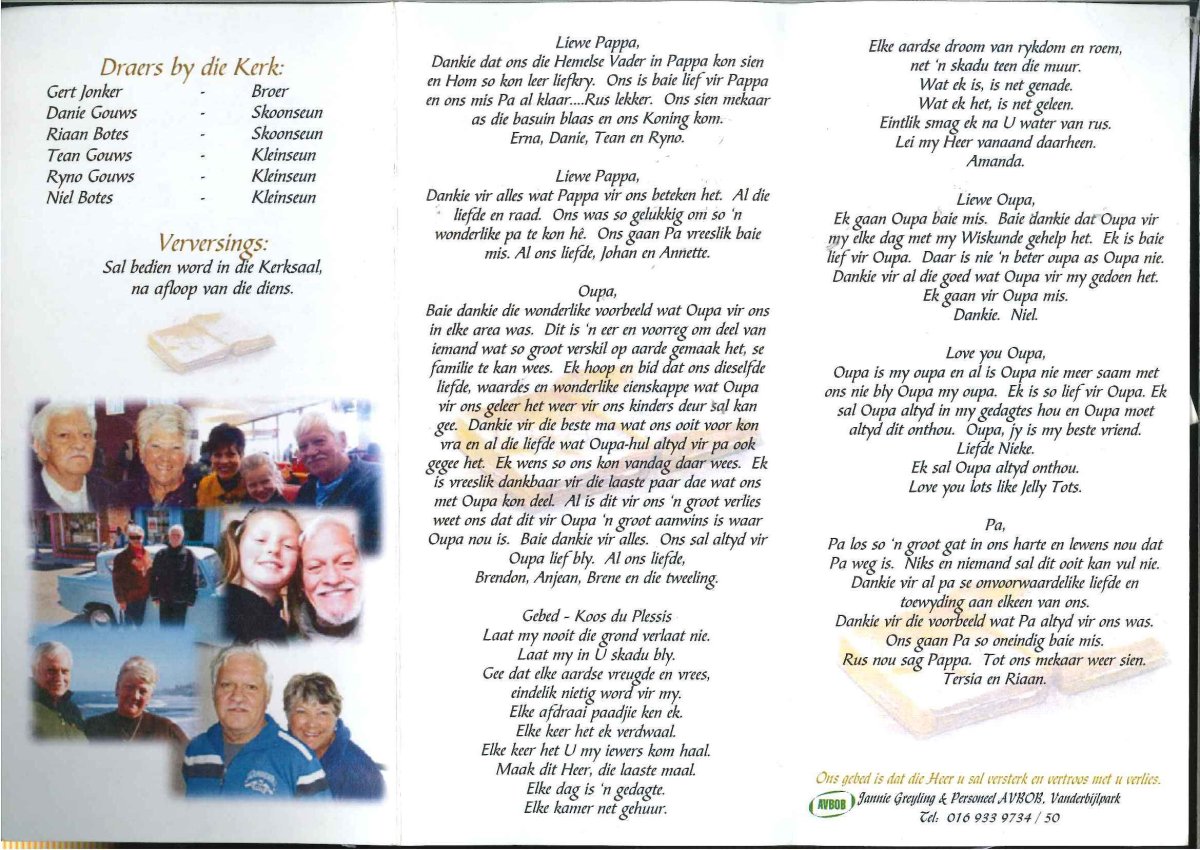 Draers by die Kerk:
Gert Jonker - Broer
Danie Gouws - Skoonseun
Riaan Botes - Skoonseun
Tean Gouws - Kleinseun
Ryno Gouws - Kleinseun
Niel Botes - Kleinseun
Verversings:
Sal bedien word in die Kerksaal,
na afloop van die diens.
Liewe Pappa,
Dankie dat ons die Hemelse Vader in Pappa kon sien
en Hom so kon leer liefkry. Ons is baie lief vir Pappa
en ons mis Pa al klaar....Rus lekker. Ons sien mekaar
as die basuin blaas en ons Koning kom.
Erna, Danie, Tean en Ryno.
Liewe Pappa,
Dankie vir alles wat Pappa vir ons beteken het. Al die
liefde en raad. Ons was so gelukkig om so 'n
wonderlike pa te kon hê. Ons gaan Pa vreeslik baie
mis. Al ons liefde, Johan en Annette.
Oupa,
Baie dankie die wonderlike voorbeeld wat Oupa vir ons
in elke area was. Dit is 'n eer en voorreg om deel van
iemand wat so groot verskil op aarde gemaak het, se
familie te kan wees. Ek hoop en bid dat ons dieselfde
liefde, waardes en wonderlike eienskappe wat Oupa
vir ons geleer het weer vir ons kinders deur sal kan
gee. Dankie vir die beste ma wat ons ooit voor kon
vra en al die liefde wat Oupa-hul altyd vir pa ook
gegee het. Ek wens so ons kon vandag daar wees. Ek
is vreeslik dankbaar vir die laaste paar dae wat ons
met Oupa kon deel. Al is dit vir ons 'n groot verlies
weet ons dat dit vir Oupa 'n groot aanwins is waar
Oupa nou is. Baie dankie vir alles. Ons sal altyd vir
Oupa lief bly. Al ons liefde,
Brendon, Anjean, Brene en die tweeling.
Gebed - Koos du Plessis
Laat my nooit die grond verlaat nie.
Laat my in U skadu bly.
Gee dat elke aardse vreugde en vrees,
eindelik nietig word vir my.
Elke afdraai paadjie ken ek.
Elke keer het ek verdwaal.
Elke keer het U my iewers kom haal.
Maak dit Heer, die laaste maal.
Elke dag is 'n gedagte.
Elke kamer net gehuur.
Elke aardse droom van rykdom en roem,
net 'n skadu teen die muur.
Wat ek is, is net genade.
Wat ek het, is net geleen.
Eintlik smag ek na U water van rus.
Lei my Heer vanaand daarheen.
Amanda.
Liewe Oupa,
Ek gaan Oupa baie mis. Baie dankie dat Oupa vir
my elke dag met my Wiskunde gehelp het. Ek is baie
lief vir Oupa. Daar is nie 'n beter oupa as Oupa nie.
Dankie vir al die goed wat Oupa vir my gedoen het.
Ek gaan vir Oupa mis.
Dankie. Niel.
Love you Oupa,
Oupa is my oupa en al is Oupa nie meer saam met
ons nie bly Oupa my oupa. Ek is so lief vir Oupa. Ek
sal Oupa altyd in my gedagtes hou en Oupa moet
altyd dit onthou. Oupa, jy is my beste vriend.
Liefde Nieke.
Ek sal Oupa altyd onthou.
Love you lots like Jelly Tots.
Pa,
Pa los so 'n groot gat in ons harte en lewens nou dat
Pa weg is. Niks en niemand sal dit ooit kan vul nie.
Dankie vir al pa se onvoorwaardelike liefde en
toewyding aan elkeen van ons.
Dankie vir die voorbeeld wat Pa altyd vir ons was.
Ons gaan Pa so oneindig baie mis.
Rus nou sag Pappa. Tot ons mekaar weer sien.
Tersia en Riaan.
Ons gebed is dat die Heer u sal versterk en vertroos met u verlies.
AVBOB
Jannie Greyling & Personeel AVBOB, Vanderbijlpark
Tel: 016 933 9734 / 50